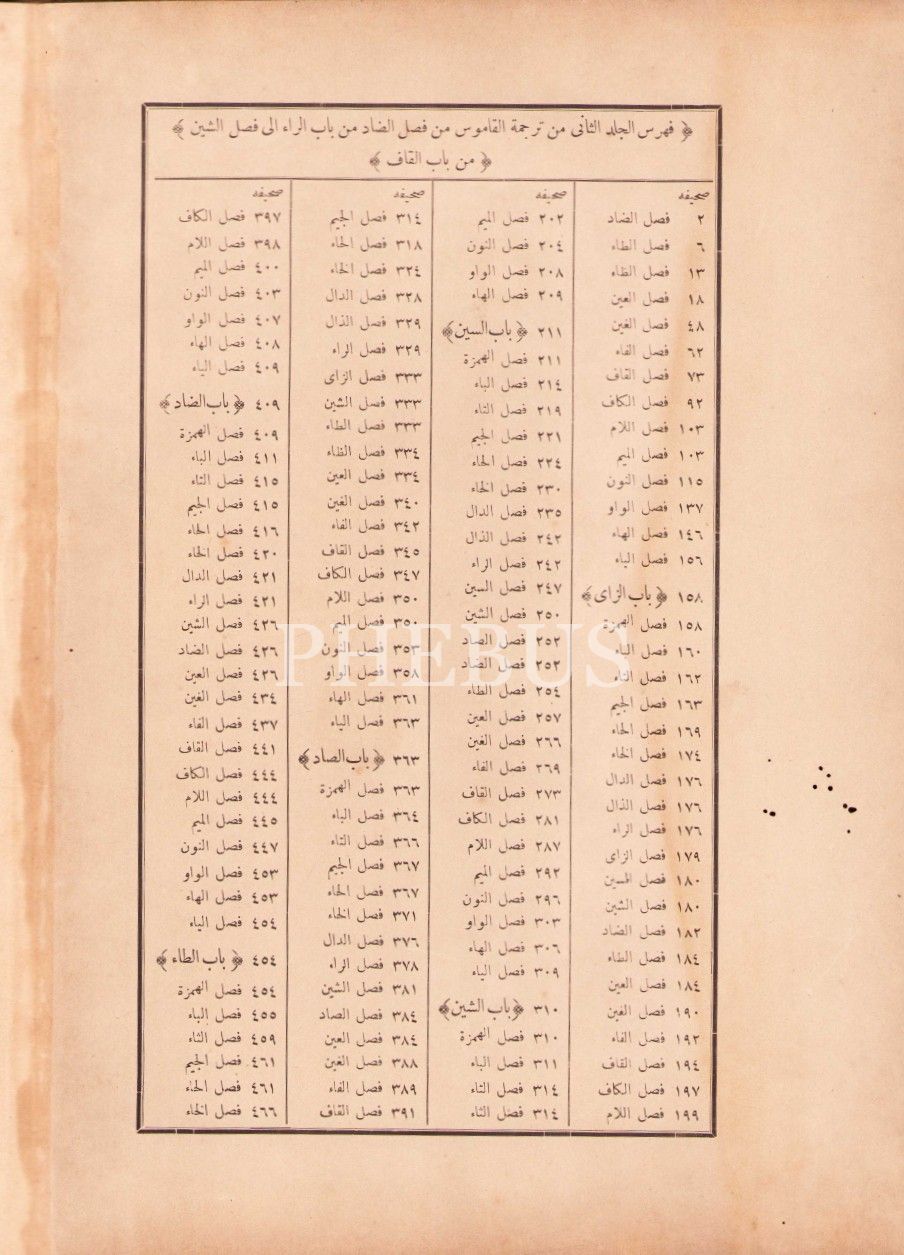 ﴿ فهرس الجلد الثانى من ترجمة القاموس من فصل الضاد من باب الراء الى فصل الشين ﴾
﴿ من باب القاف ﴾
صحيفه
٢ فصل الضاد
٦ فصل الطاء
١٣ فصل الظاء
١٨ فصل العين
٤٨ فصل الغين
٦٢ فصل الفاء
٧٣ فصل القاف
٩٢ فصل الكاف
١٠٣ فصل اللام
١٠٣ فصل الميم
١١٥ فصل النون
١٣٧ فصل الواو
١٤٦ فصل الهاء
١٥٦ فصل الياء
١٥٨ ﴿ باب الزاى ﴾
١٥٨ فصل الهمزة
١٦٠ فصل الباء
١٦٢ فصل التاء
١٦٣ فصل الجيم
١٦٩ فصل الحاء
١٧٤ فصل الخاء
١٧٦ فصل الدال
١٧٦ فصل الذال
١٧٦ فصل الراء
١٧٩ فصل الزاى
١٨٠ فصل السين
١٨٠ فصل الشين
١٨٢ فصل الضاد
١٨٤ فصل الطاء
١٨٤ فصل العين
١٩٠ فصل الغين
١٩٢ فصل الفاء
١٩٤ فصل القاف
١٩٧ فصل الكاف
١٩٩ فصل اللام
صحيفه
٢٠٢ فصل الميم
٢٠٤ فصل النون
٢٠٨ فصل الواو
٢٠٩ فصل الهاء
٢١١ ﴿ باب السين ﴾
٢١١ فصل الهمزة
٢١٤ فصل الباء
٢١٩ فصل التاء
٢٢١ فصل الجيم
٢٢٤ فصل الحاء
٢٣٠ فصل الخاء
٢٣٥ فصل الدال
٢٤٢ فصل الذال
٢٤٢ فصل الراء
٢٤٧ فصل السين
٢٥٠ فصل الشين
٢٥٢ فصل الصاد
٢٥٢ فصل الضاد
٢٥٤ فصل الطاء
٢٥٧ فصل العين
٢٦٦ فصل الغين
٢٦٩ فصل الفاء
٢٧٣ فصل القاف
٢٨١ فصل الكاف
٢٨٧ فصل اللام
٢٩٢ فصل الميم
٢٩٦ فصل النون
٣٠٣ فصل الواو
٣٠٦ فصل الهاء
٣٠٩ فصل الياء
٣١٠ ﴿ باب الشين ﴾
٣١٠ فصل الهمزة
٣١١ فصل الباء
٣١٤ فصل التاء
٣١٤ فصل الثاء
صحيفه
٣١٤ فصل الجيم
٣١٨ فصل الحاء
٣٢٤ فصل الخاء
٣٢٨ فصل الدال
٣٢٩ فصل الذال
٣٢٩ فصل الراء
٣٣٣ فصل الزاى
٣٣٣ فصل الشين
٣٣٣ فصل الطاء
٣٣٤ فصل الظاء
٣٣٤ فصل العين
٣٤٠ فصل الغين
٣٤٢ فصل الفاء
٣٤٥ فصل القاف
٣٤٧ فصل الكاف
٣٥٠ فصل اللام
٣٥٠ فصل الميم
٣٥٣ فصل النون
٣٥٨ فصل الواو
٣٦١ فصل الهاء
٣٦٣ فصل الياء
٣٦٣ ﴿ باب الصاد ﴾
٣٦٣ فصل الهمزة
٣٦٤ فصل الباء
٣٦٦ فصل التاء
٣٦٧ فصل الجيم
٣٦٧ فصل الحاء
٣٧١ فصل الخاء
٣٧٦ فصل الدال
٣٧٨ فصل الراء
٣٨١ فصل الشين
٣٨٤ فصل الصاد
٣٨٤ فصل العين
٣٨٨ فصل الغين
٣٨٩ فصل الفاء
٣٩١ فصل القاف
صحيفه
٣٩٧ فصل الكاف
٣٩٨ فصل اللام
٤٠٠ فصل الميم
٤٠٣ فصل النون
٤٠٧ فصل الواو
٤٠٨ فصل الهاء
٤٠٩ فصل الياء
٤٠٩ ﴿ باب الضاد ﴾
٤٠٩ فصل الهمزة
٤١١ فصل الباء
٤١٥ فصل التاء
٤١٥ فصل الجيم
٤١٦ فصل الحاء
٤٢٠ فصل الخاء
٤٢١ فصل الدال
٤٢١ فصل الراء
٤٢٦ فصل الشين
٤٢٦ فصل الضاد
٤٢٦ فصل العين
٤٣٤ فصل الغين
٤٣٧ فصل الفاء
٤٤١ فصل القاف
٤٤٤ فصل الكاف
٤٤٤ فصل اللام
٤٤٥ فصل الميم
٤٤٧ فصل النون
٤٥٣ فصل الواو
٤٥٣ فصل الهاء
٤٥٤ فصل الياء
٤٥٤ ﴿ باب الطاء ﴾
٤٥٤ فصل الهمزة
٤٥٥ فصل الباء
٤٥٩ فصل الثاء
٤٦١ فصل الجيم
٤٦١ فصل الحاء
٤٦٦ فصل الخاء
PHEBUS